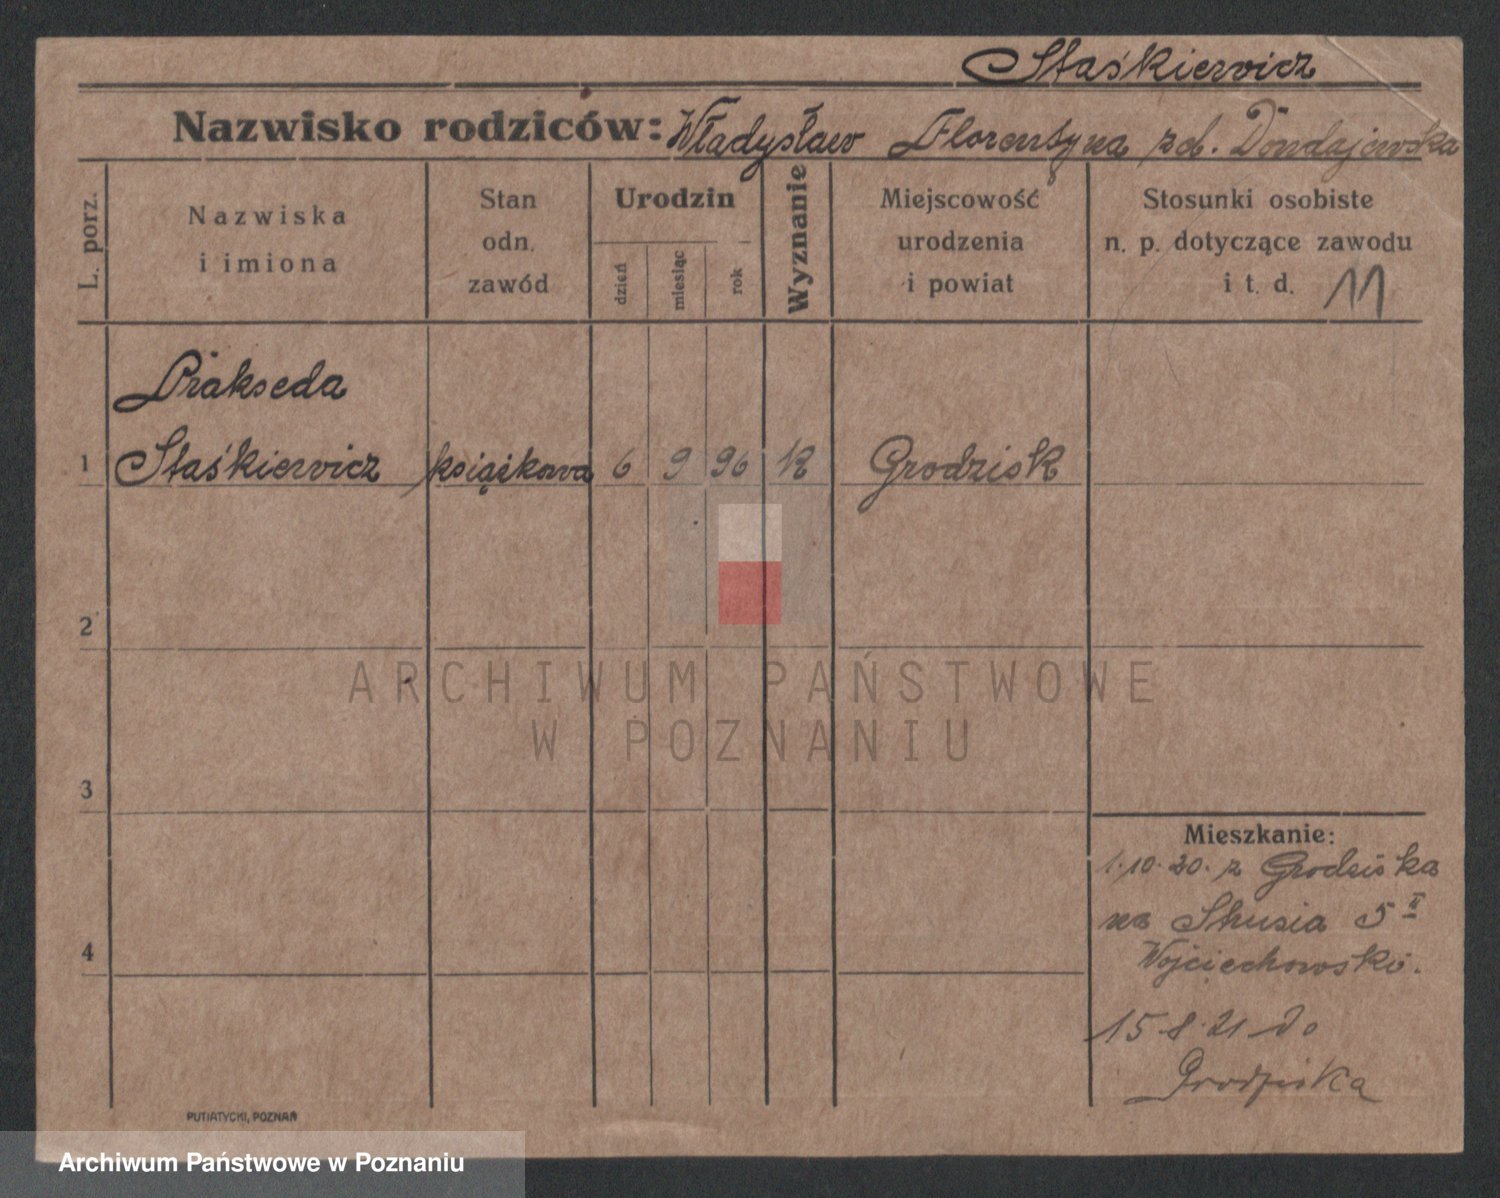 Staśkiewicz
Nazwisko rodziców: Władysław Florentyna zd. Dondajewska
L. porz.
Nazwiska
i imiona
Stan
odn.
zawód
Urodzin
dzień
miesiąc
rok
Wyznanie
Miejscowość
urodzenia
i powiat
Stosunki osobiste
n. p. dotyczące zawodu
i t. d. 11
Prakseda
1 Staśkiewicz książkowa 6 9 96 k Grodzisk
2
ARCHIWUM PAŃSTWOWE
W POZNANIU
3
Mieszkanie:
1.10.20. z Grodziska
na 5 II
Wojciechowski.
4
15 8 21 do
Grodziska
PUTIATYCKI, POZNAŃ
Archiwum Państwowe w Poznaniu